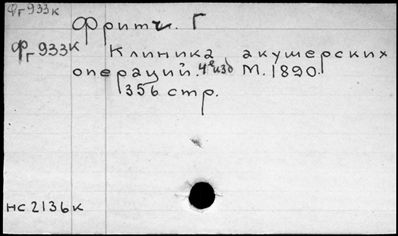 Фг933к
Фритч. Г
Фг933к Клиника акушерских
операций. 4е изд М. 1890.
356 стр.
нс2136к